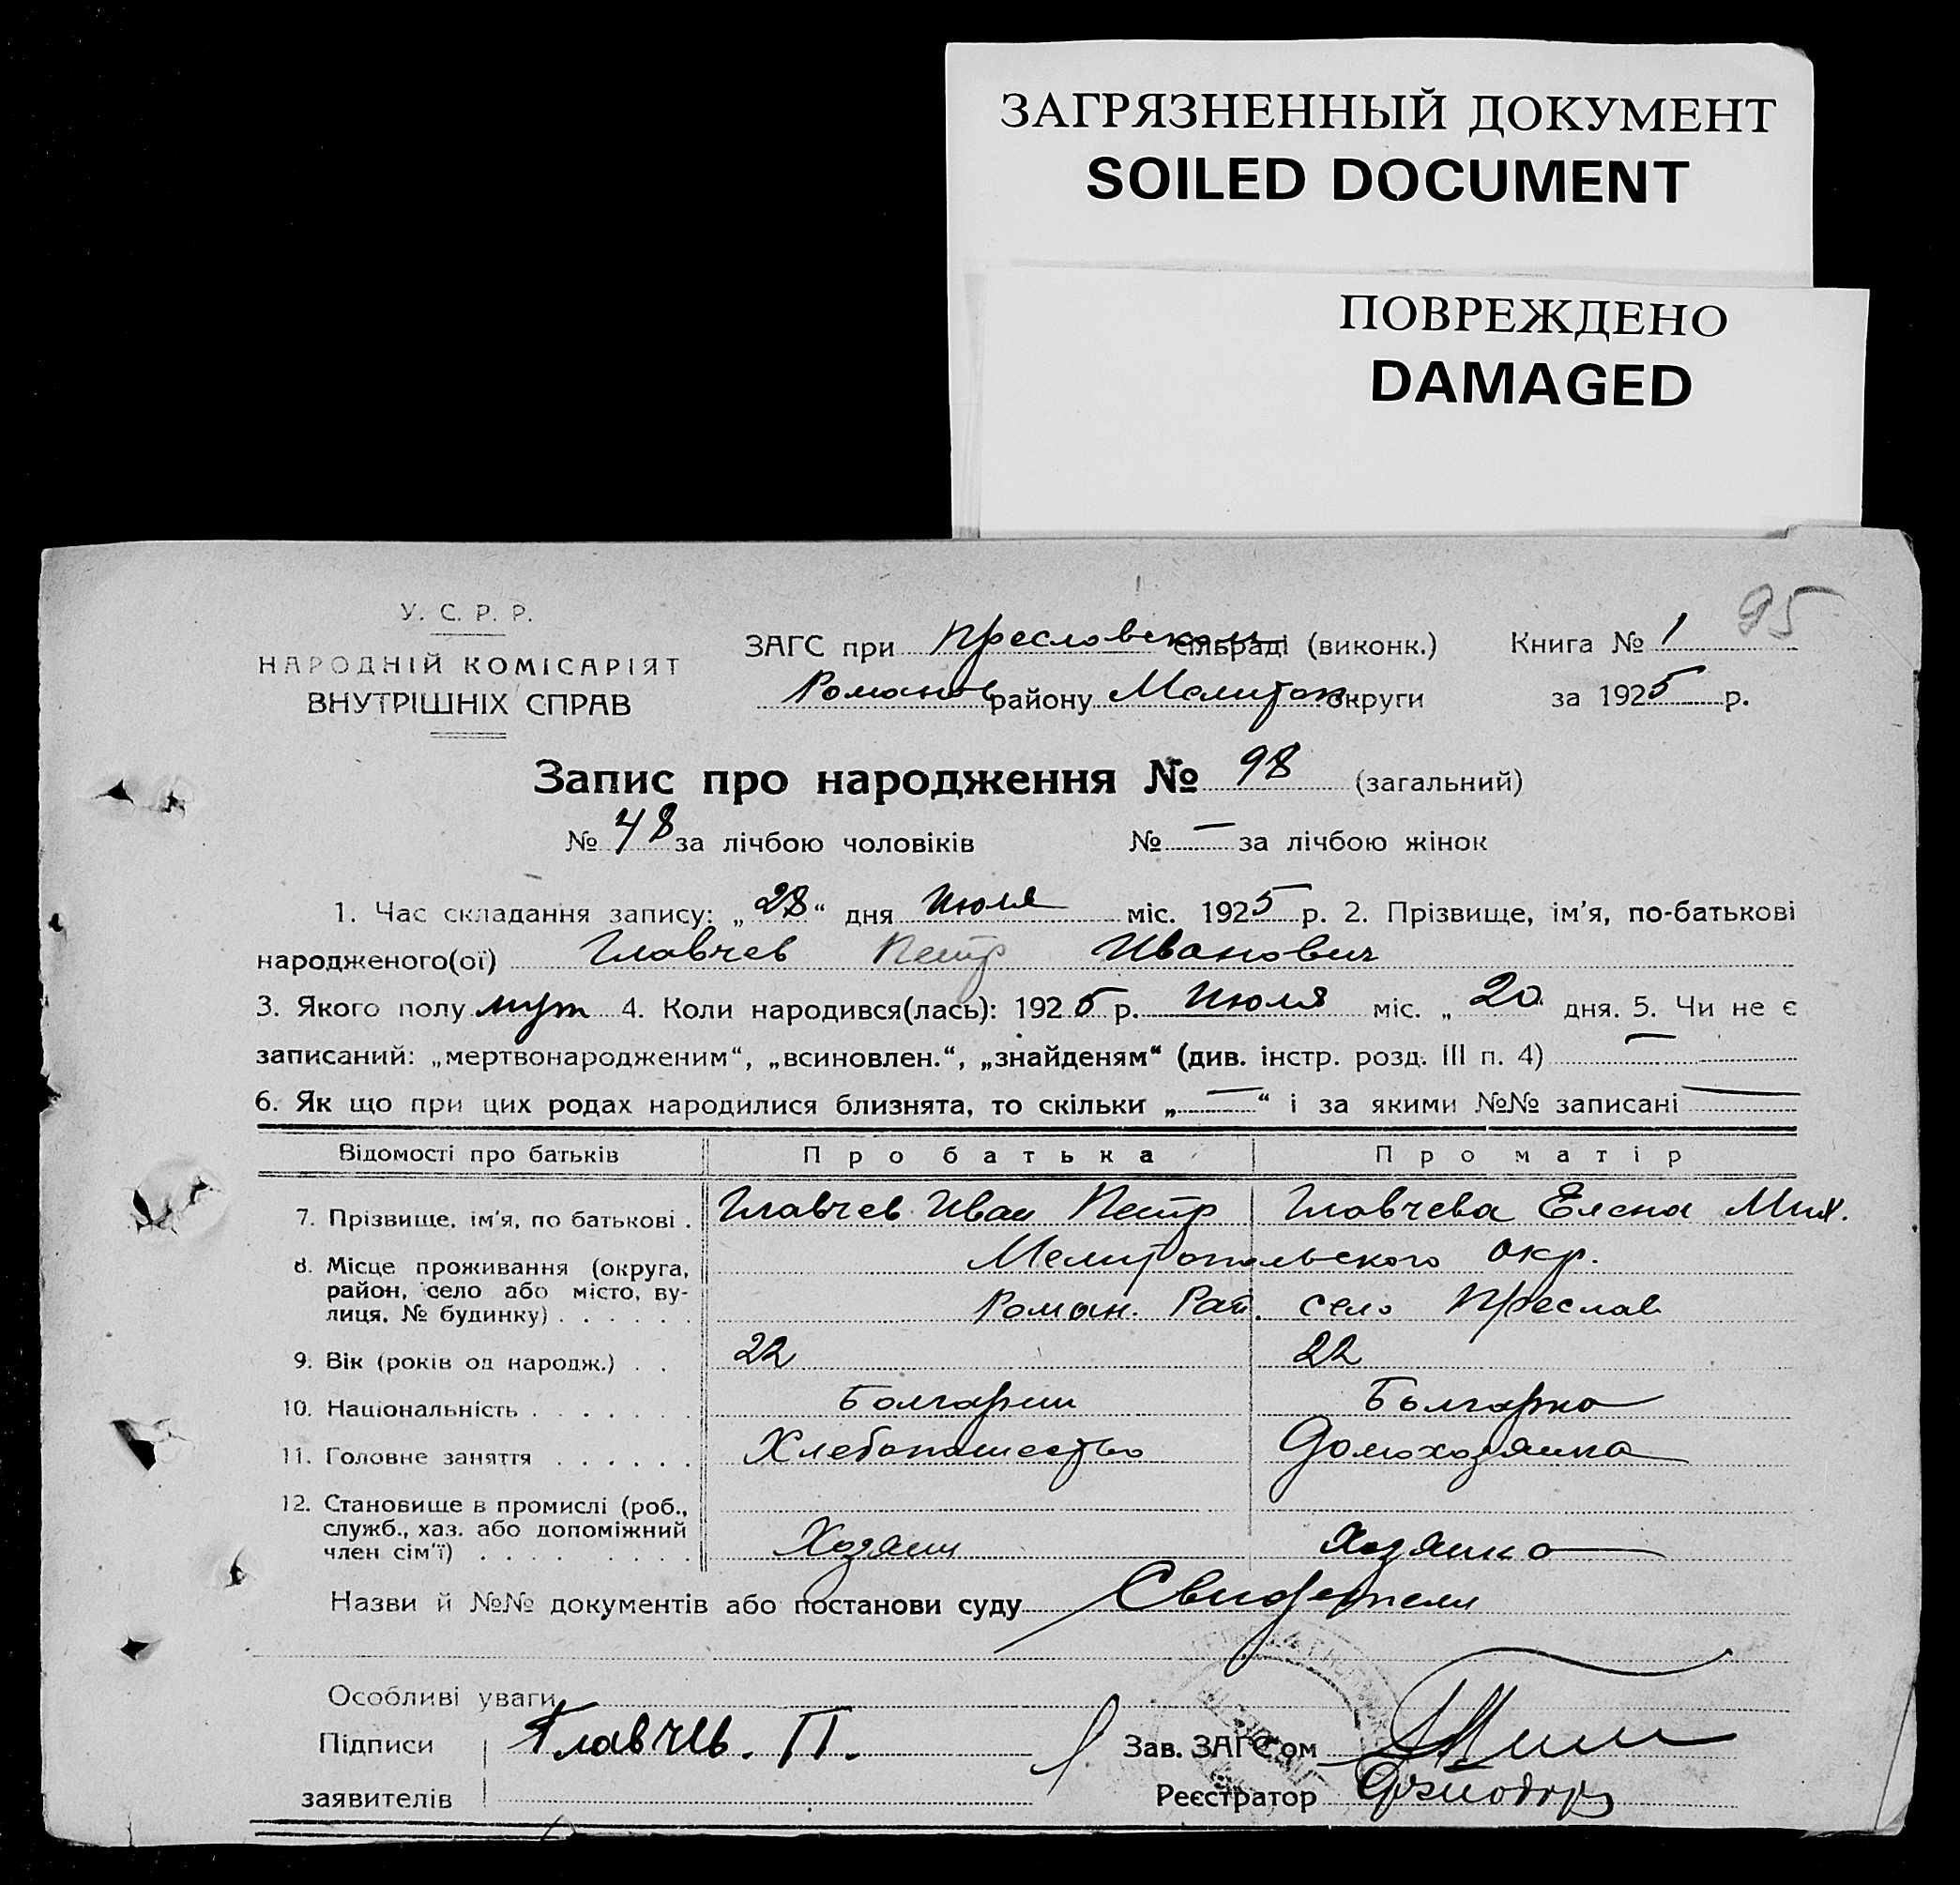 ЗАГРЯЗНЕННЫЙ ДОКУМЕНТ
SOILED DOCUMENT
ПОВРЕЖДЕНО
DAMAGED
95
У. С. Р. Р.
НАРОДНІЙ КОМІСАРІЯТ
ВНУТРІШНІХ СПРАВ
ЗАГС при Преславском сільраді (виконк.) Книга № 1
Романов району Мелитоп. округи за 1925 р.
Запис про народження № 98 (загальний)
№ 48 за лічбою чоловіків № — за лічбою жінок
1. Час складання запису: „28“ дня Июля міс. 1925 р. 2. Прізвище, ім'я, по-батькові
народженого(ої) Главчев Петр Иванович
3. Якого полу муж 4. Коли народився(лась): 1925 р. Июля міс. „20 дня. 5. Чи не є
записаний: „мертвонародженим“, „всиновлен.“, „знайденям“ (див. інстр. розд. III п. 4) —
6. Як що при цих родах народилися близнята, то скільки „—“ і за якими №№ записані —
Відомості про батьків Про батька Про матір
7. Прізвище, ім'я, по батькові . Главчев Иван Петр Главчева Елена Мих.
8. Місце проживання (округа, Мелитопольского окр.
район, село або місто, ву-
лиця, № будинку) . . . . . . Роман. Рай. село Преслав
9. Вік (років од народж.) . . 22 22
10. Національність . . . . . . . Болгарин Болгарка
11. Головне заняття . . . . . . Хлебопашество Домохозяйка
12. Становище в промислі (роб.,
служб., хаз. або допоміжний
член сім'ї) . . . . . . . . . Хозяин Хозяйка
Назви й №№ документів або постанови суду Свидетели
Особливі уваги
Підписи Главчев. П. Зав. ЗАГС'ом
заявителів Реєстратор